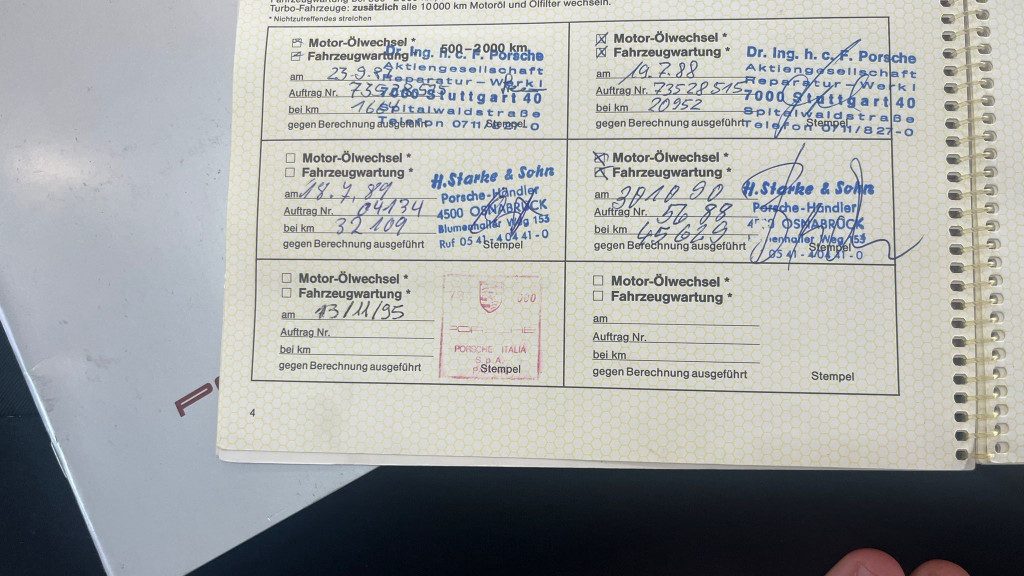 Turbo-Fahrzeuge: zusätzlich alle 10000 km Motoröl und Ölfilter wechseln.
* Nichtzutreffendes streichen
Motor-Ölwechsel * 500–2000 km
Fahrzeugwartung
am 23.9.
Auftrag Nr.
bei km
gegen Berechnung ausgeführt
Stempel
Dr. Ing. h. c. F. Porsche
Aktiengesellschaft
Reparatur-Werk I
7000 Stuttgart 40
Spitalwaldstraße
Telefon 0711/827-0
Motor-Ölwechsel *
Fahrzeugwartung *
am 19.7.88
Auftrag Nr. 73528515
bei km 20952
gegen Berechnung ausgeführt
Stempel
Dr. Ing. h. c. F. Porsche
Aktiengesellschaft
Reparatur-Werk I
7000 Stuttgart 40
Spitalwaldstraße
Telefon 0711/827-0
Motor-Ölwechsel *
Fahrzeugwartung *
am 18.7.89
Auftrag Nr. 04134
bei km 32109
gegen Berechnung ausgeführt
Stempel
H. Starke & Sohn
Porsche-Händler
4500 OSNABRÜCK
Blumenhaller Weg 153
Ruf 05 41 - 4 04 41 - 0
Motor-Ölwechsel *
Fahrzeugwartung *
am 30 10 90
Auftrag Nr. 5688
bei km 45629
gegen Berechnung ausgeführt
Stempel
H. Starke & Sohn
Porsche-Händler
OSNABRÜCK
Weg 153
05 41 - 4 04 41 - 0
Motor-Ölwechsel *
Fahrzeugwartung *
am 13/11/95
Auftrag Nr.
bei km
gegen Berechnung ausgeführt
Stempel
PORSCHE ITALIA
S.p.A.
Motor-Ölwechsel *
Fahrzeugwartung *
am
Auftrag Nr.
bei km
gegen Berechnung ausgeführt
Stempel
4